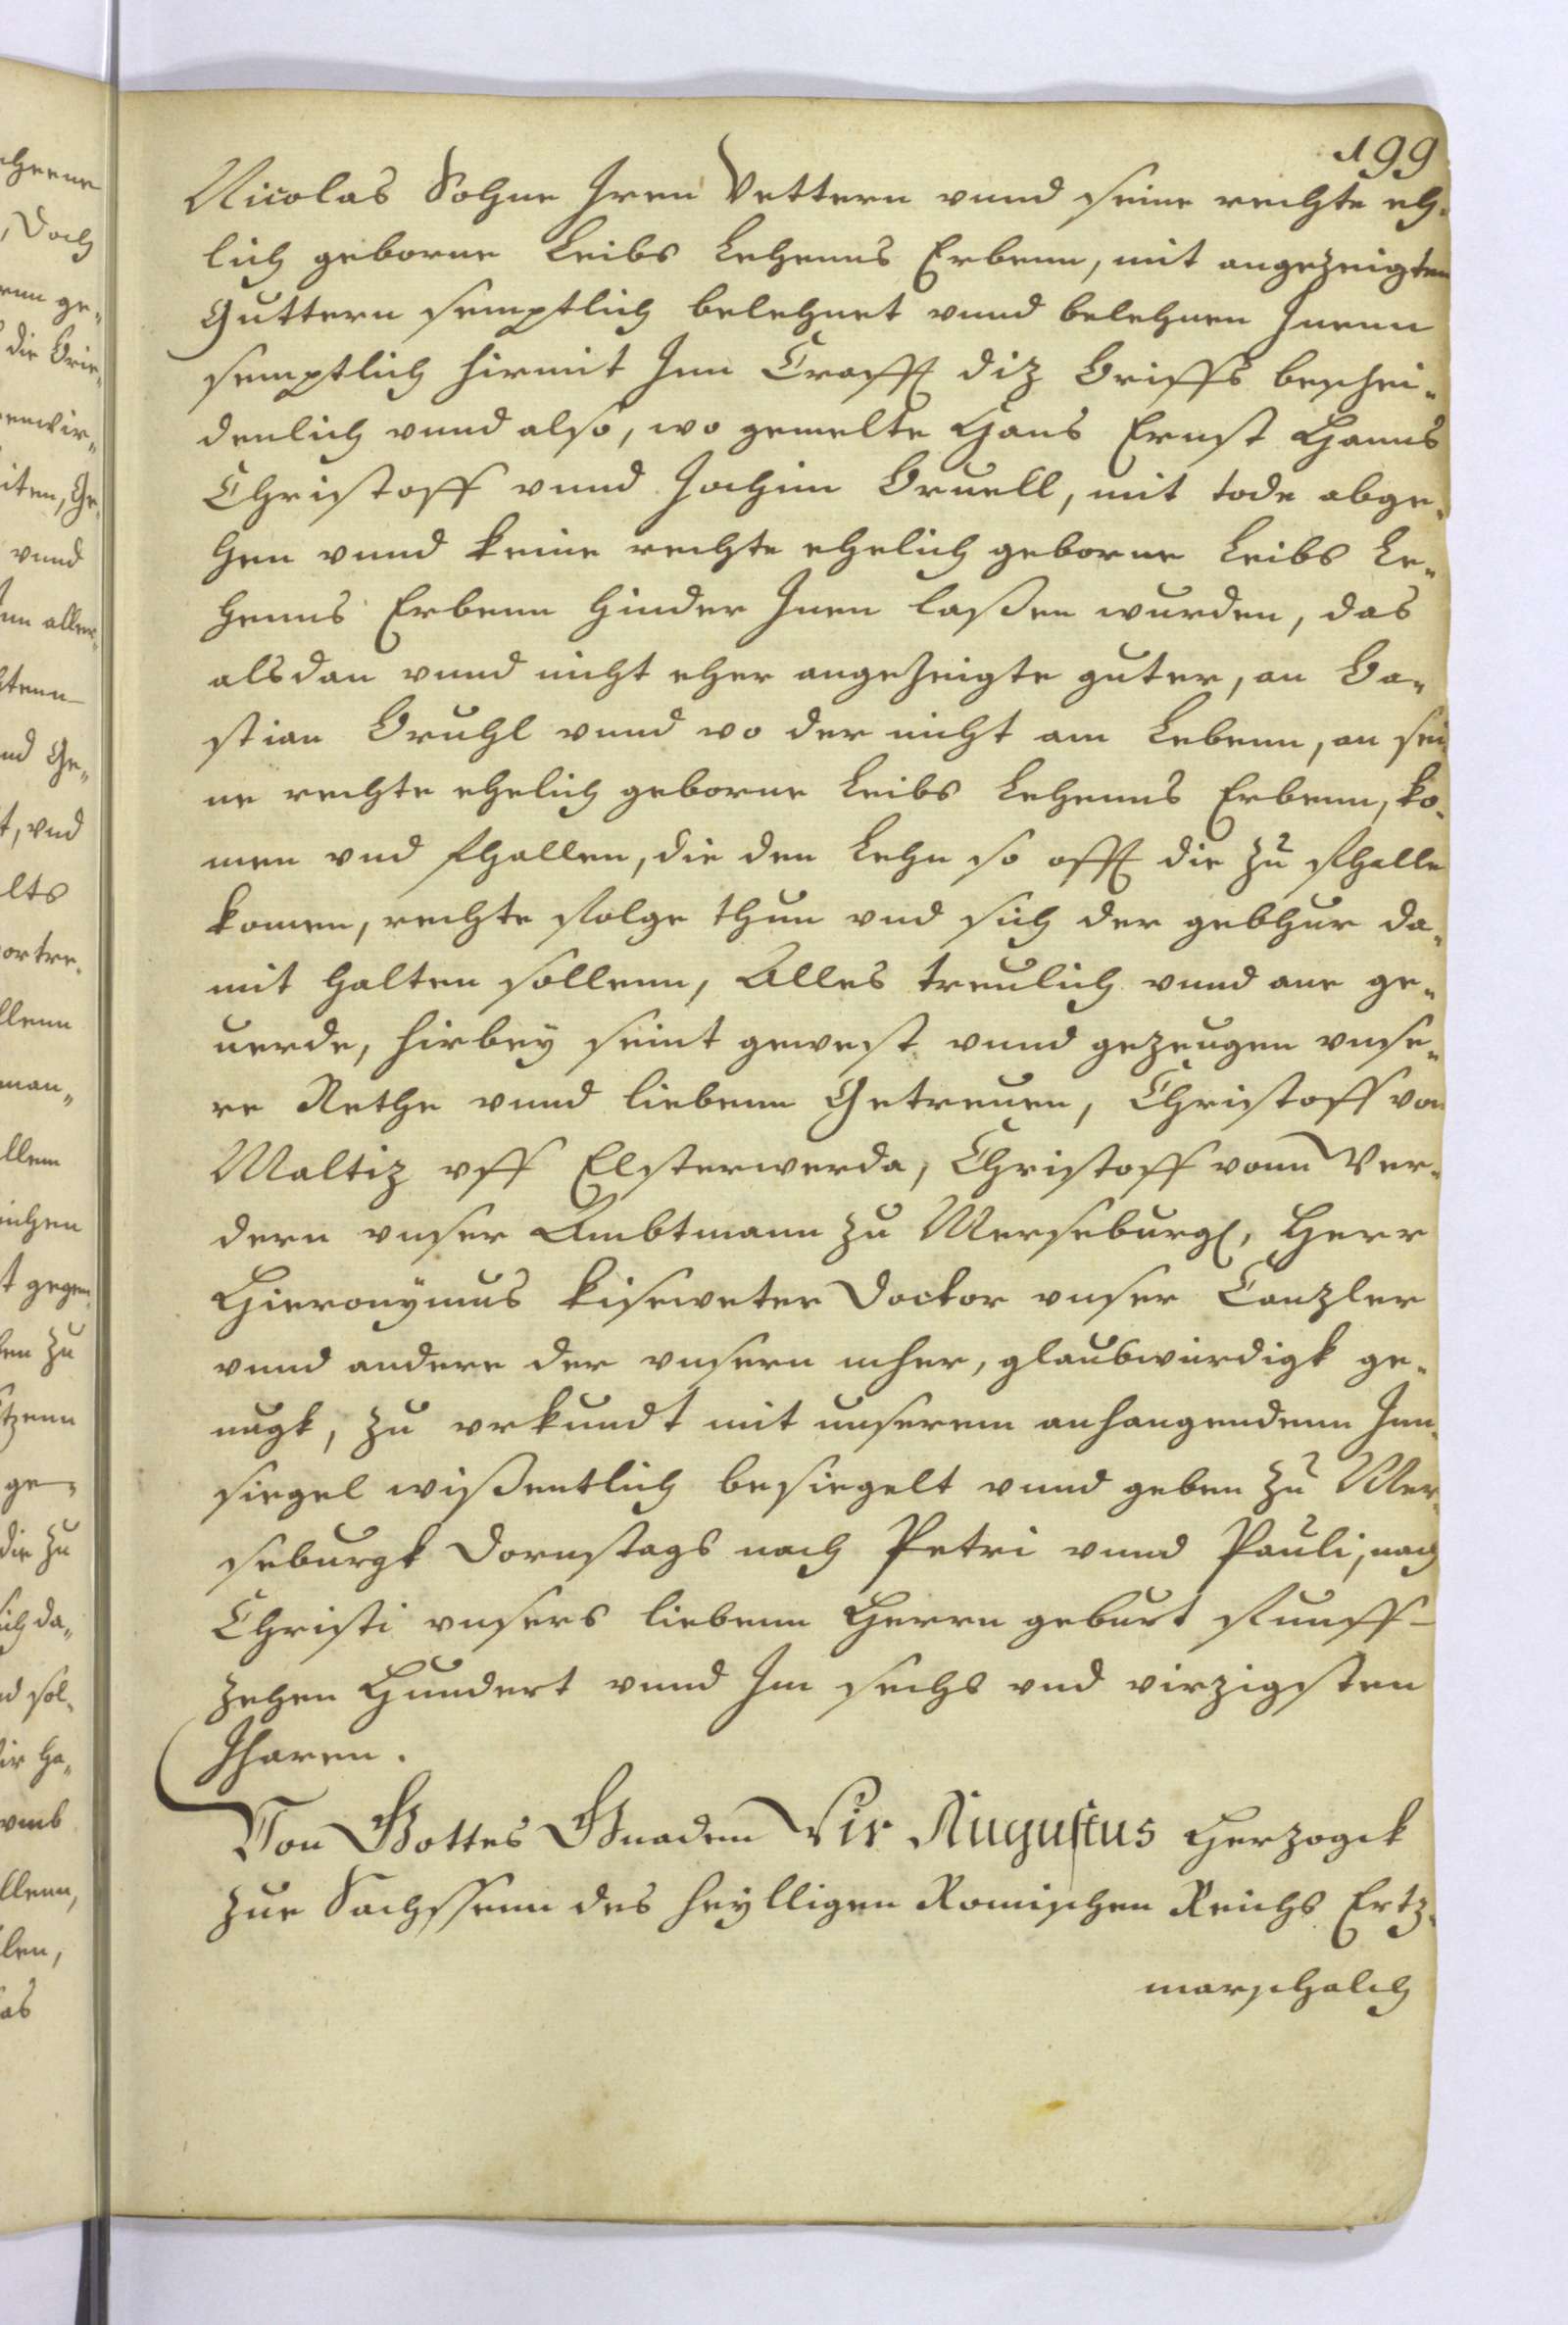 199
Nicolas Sohne Iren Vettern vnnd seine rechte eh-
lich geborne Leibs Lehenns Erbenn, mit angezeigten
Guttern semptlich belehnet vnnd belehnen Inenn
semptlich hirmit Inn Crafft diz Briffs beschei-
denlich vnnd also, wo gemelte Hans Ernst Hanns
Christoff vnnd Jochim Bruell, mit tode abge-
hen vnnd keine rechte ehelich geborne Leibs Le-
henns Erbenn hinder Inen laßen wurden, das
alsdan vnnd nicht eher angezeigte guter, an Ba-
stian Bruhl vnnd wo der nicht am Lebenn, an sei-
ne rechte ehelich geborne Leibs Lehenns Erbenn, ko-
men vnd fhallen, die den Lehn so offt die zu fhalle
komen, rechte folge thun vnd sich der gebhur da-
mit halten sollenn, Alles treulich vnnd ane ge-
uerde, hirbey seint gewest vnnd gezeugen vnse-
re Rethe vnnd liebenn Getreuen, Christoff von
Maltiz vff Elsterwerda, Christoff vonn Wer-
dern vnser Ambtmann zu Merseburg, Herr
Hieronymus Kisewetter Doctor vnser Canzler
vnnd andere der vnsern mher, glaubwurdigk ge-
nugk, zu vrkundt mit unserem anhangendenn Inn-
siegel wißentlich besiegelt vnnd geben zu Mer-
seburgk Dornstags nach Petri vnnd Pauli, nach
Christi vnsers liebenn Herrn geburt funff-
zehen Hundert vnnd Im sechs vnd virzigsten
Jharen.
Von Gottes Gnaden Wir Augustus Herzogk
zue Sachssenn des heylligen Romischen Reichs Ertz-
marschalch